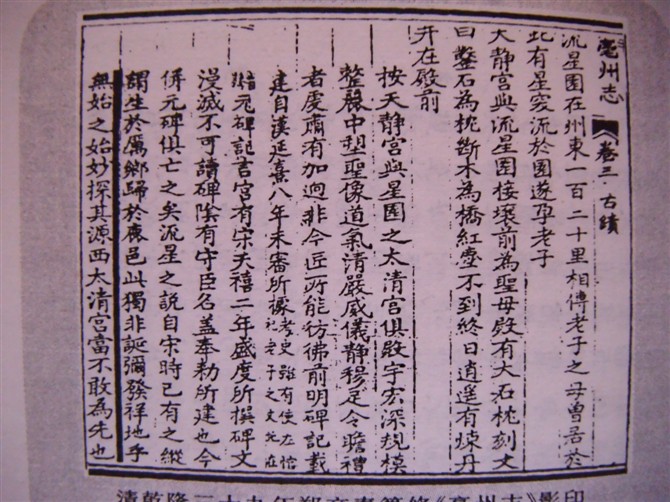 亳州志 卷三 古蹟
流星園在州東一百二十里相傳老子之母曾居於
此有星突流於園遂孕老子
天靜宮與流星園接壤前為聖母殿有大石枕刻文
曰鑿石為枕斷木為橋紅塵不到終日逍遙有煉丹
井在殿前
按天靜宮與星園之太清宮俱殿宇宏深規模
整麗中塑聖像道氣清嚴威儀靜穆足令瞻禮
者虔肅有加迥非今匠所能彷彿前明碑記載
建自漢延熹八年未審所據考史雖有使左悺祀老子之文尤在
元碑記言宮有宋天禧二年盛度所撰碑文
漫滅不可讀碑陰有守臣名蓋奉勅所建也今
併元碑俱亡之矣流星之說自宋時已有之縱
謂生於厲鄉歸於鹿邑此獨非誕彌發祥地乎
無始之始妙探其源西太清宮當不敢為先也